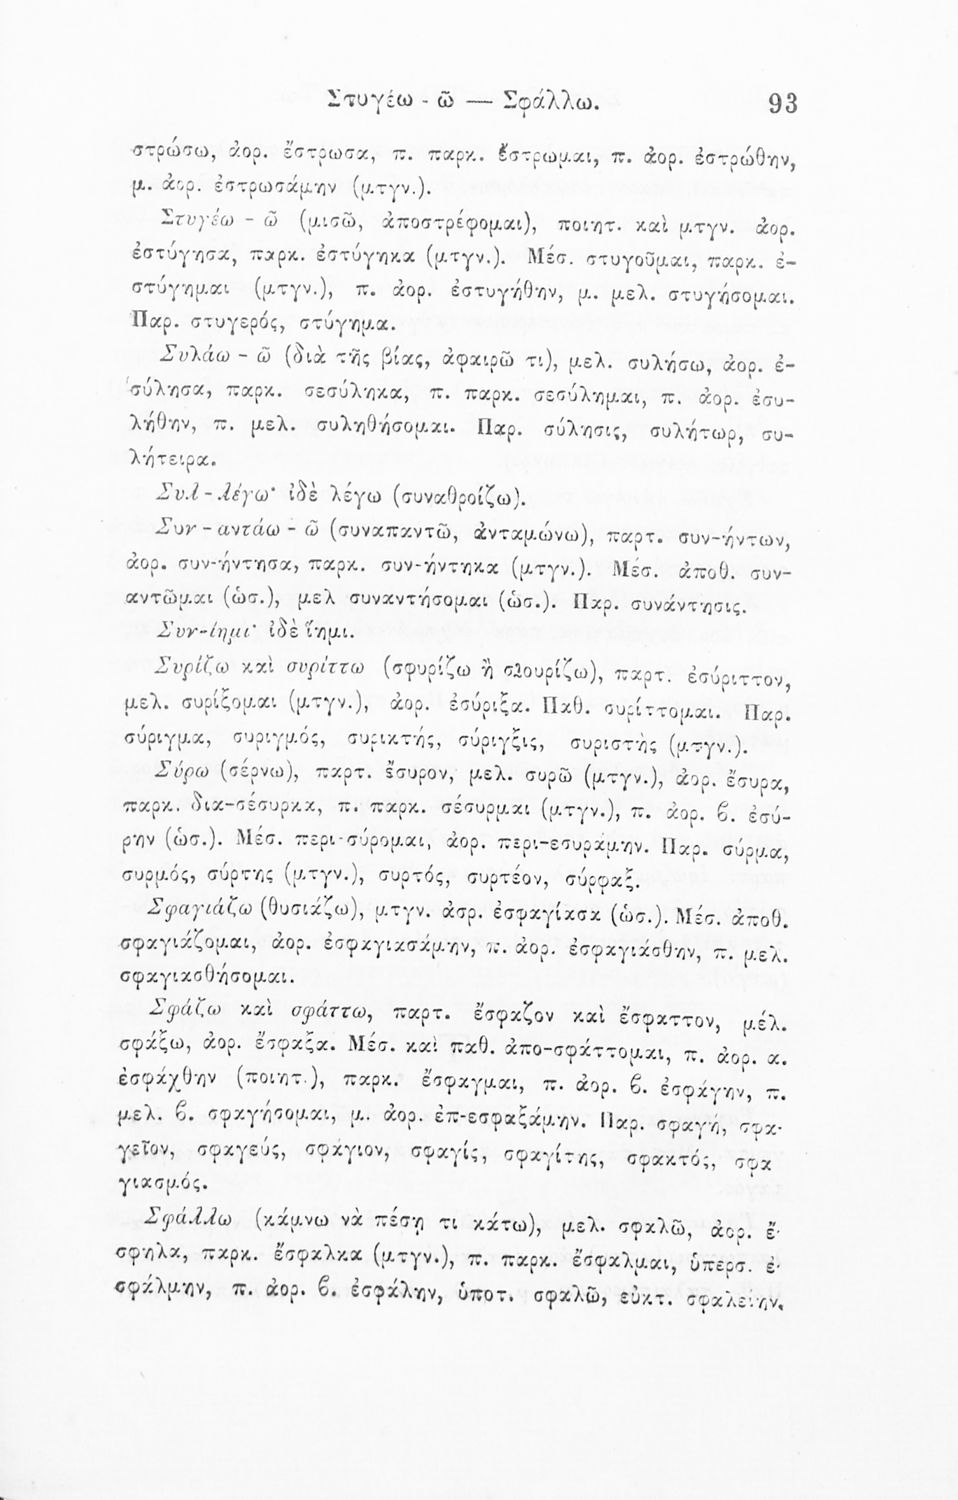 Στυγέω - ῶ — Σφάλλω. 93
στρώσω, ἀορ. ἔστρωσα, π. παρκ. ἔστρωμαι, π. ἀορ. ἐστρώθην,
μ. ἀορ. ἐστρωσάμην (μτγν.).
Στυγέω - ῶ (μισῶ, ἀποστρέφομαι), ποιητ. καὶ μτγν. ἀορ.
ἐστύγησα, παρκ. ἐστύγηκα (μτγν.). Μέσ. στυγοῦμαι, παρκ. ἐ-
στύγημαι (μτγν.), π. ἀορ. ἐστυγήθην, μ. μελ. στυγήσομαι.
Παρ. στυγερός, στύγημα.
Συλάω - ῶ (διὰ τῆς βίας, ἀφαιρῶ τι), μελ. συλήσω, ἀορ. ἐ-
σύλησα, παρκ. σεσύληκα, π. παρκ. σεσύλημαι, π. ἀορ. ἐσυ-
λήθην, π. μελ. συληθήσομαι. Παρ. σύλησις, συλήτωρ, συ-
λήτειρα.
Συλ-λέγω· ἰδὲ λέγω (συναθροίζω).
Συν-αντάω - ῶ (συναπαντῶ, ἀνταμώνω), παρτ. συν-ήντων,
ἀορ. συν-ήντησα, παρκ. συν-ήντηκα (μτγν.). Μέσ. ἀποθ. συν-
αντῶμαι (ὡσ.), μελ συναντήσομαι (ὡσ.). Παρ. συνάντησις.
Συν-ίημι· ἰδὲ ἵημι.
Συρίζω καὶ συρίττω (σφυρίζω ἢ σιουρίζω), παρτ. ἐσύριττον,
μελ. συρίξομαι (μτγν.), ἀορ. ἐσύριξα. Παθ. συρίττομαι. Παρ.
σύριγμα, συριγμός, συρικτής, σύριγξις, συριστὴς (μτγν.).
Σύρω (σέρνω), παρτ. ἔσυρον, μελ. συρῶ (μτγν.), ἀορ. ἔσυρα,
παρκ. δια-σέσυρκα, π. παρκ. σέσυρμαι (μτγν.), π. ἀορ. β. ἐσύ-
ρην (ὡσ.). Μέσ. περι-σύρομαι, ἀορ. περι-εσυράμην. Παρ. σύρμα,
συρμός, σύρτης (μτγν.), συρτός, συρτέον, σύρφαξ.
Σφαγιάζω (θυσιάζω), μτγν. ἀορ. ἐσφαγίασα (ὡσ.). Μέσ. ἀποθ.
σφαγιάζομαι, ἀορ. ἐσφαγιασάμην, π. ἀορ. ἐσφαγιάσθην, π. μελ.
σφαγιασθήσομαι.
Σφάζω καὶ σφάττω, παρτ. ἔσφαζον καὶ ἔσφαττον, μέλ.
σφάξω, ἀορ. ἔσφαξα. Μέσ. καὶ παθ. ἀπο-σφάττομαι, π. ἀορ. α.
ἐσφάχθην (ποιητ.), παρκ. ἔσφαγμαι, π. ἀορ. β. ἐσφάγην, π.
μελ. β. σφαγήσομαι, μ. ἀορ. ἐπ-εσφαξάμην. Παρ. σφαγή, σφα-
γεῖον, σφαγεύς, σφάγιον, σφαγίς, σφαγίτης, σφακτός, σφα
γιασμός.
Σφάλλω (κάμνω νὰ πέσῃ τι κάτω), μελ. σφαλῶ, ἀορ. ἔ-
σφηλα, παρκ. ἔσφαλκα (μτγν.), π. παρκ. ἔσφαλμαι, ὑπερσ. ἐ-
σφάλμην, π. ἀορ. β. ἐσφάλην, ὑποτ. σφαλῶ, εὐκτ. σφαλείην,